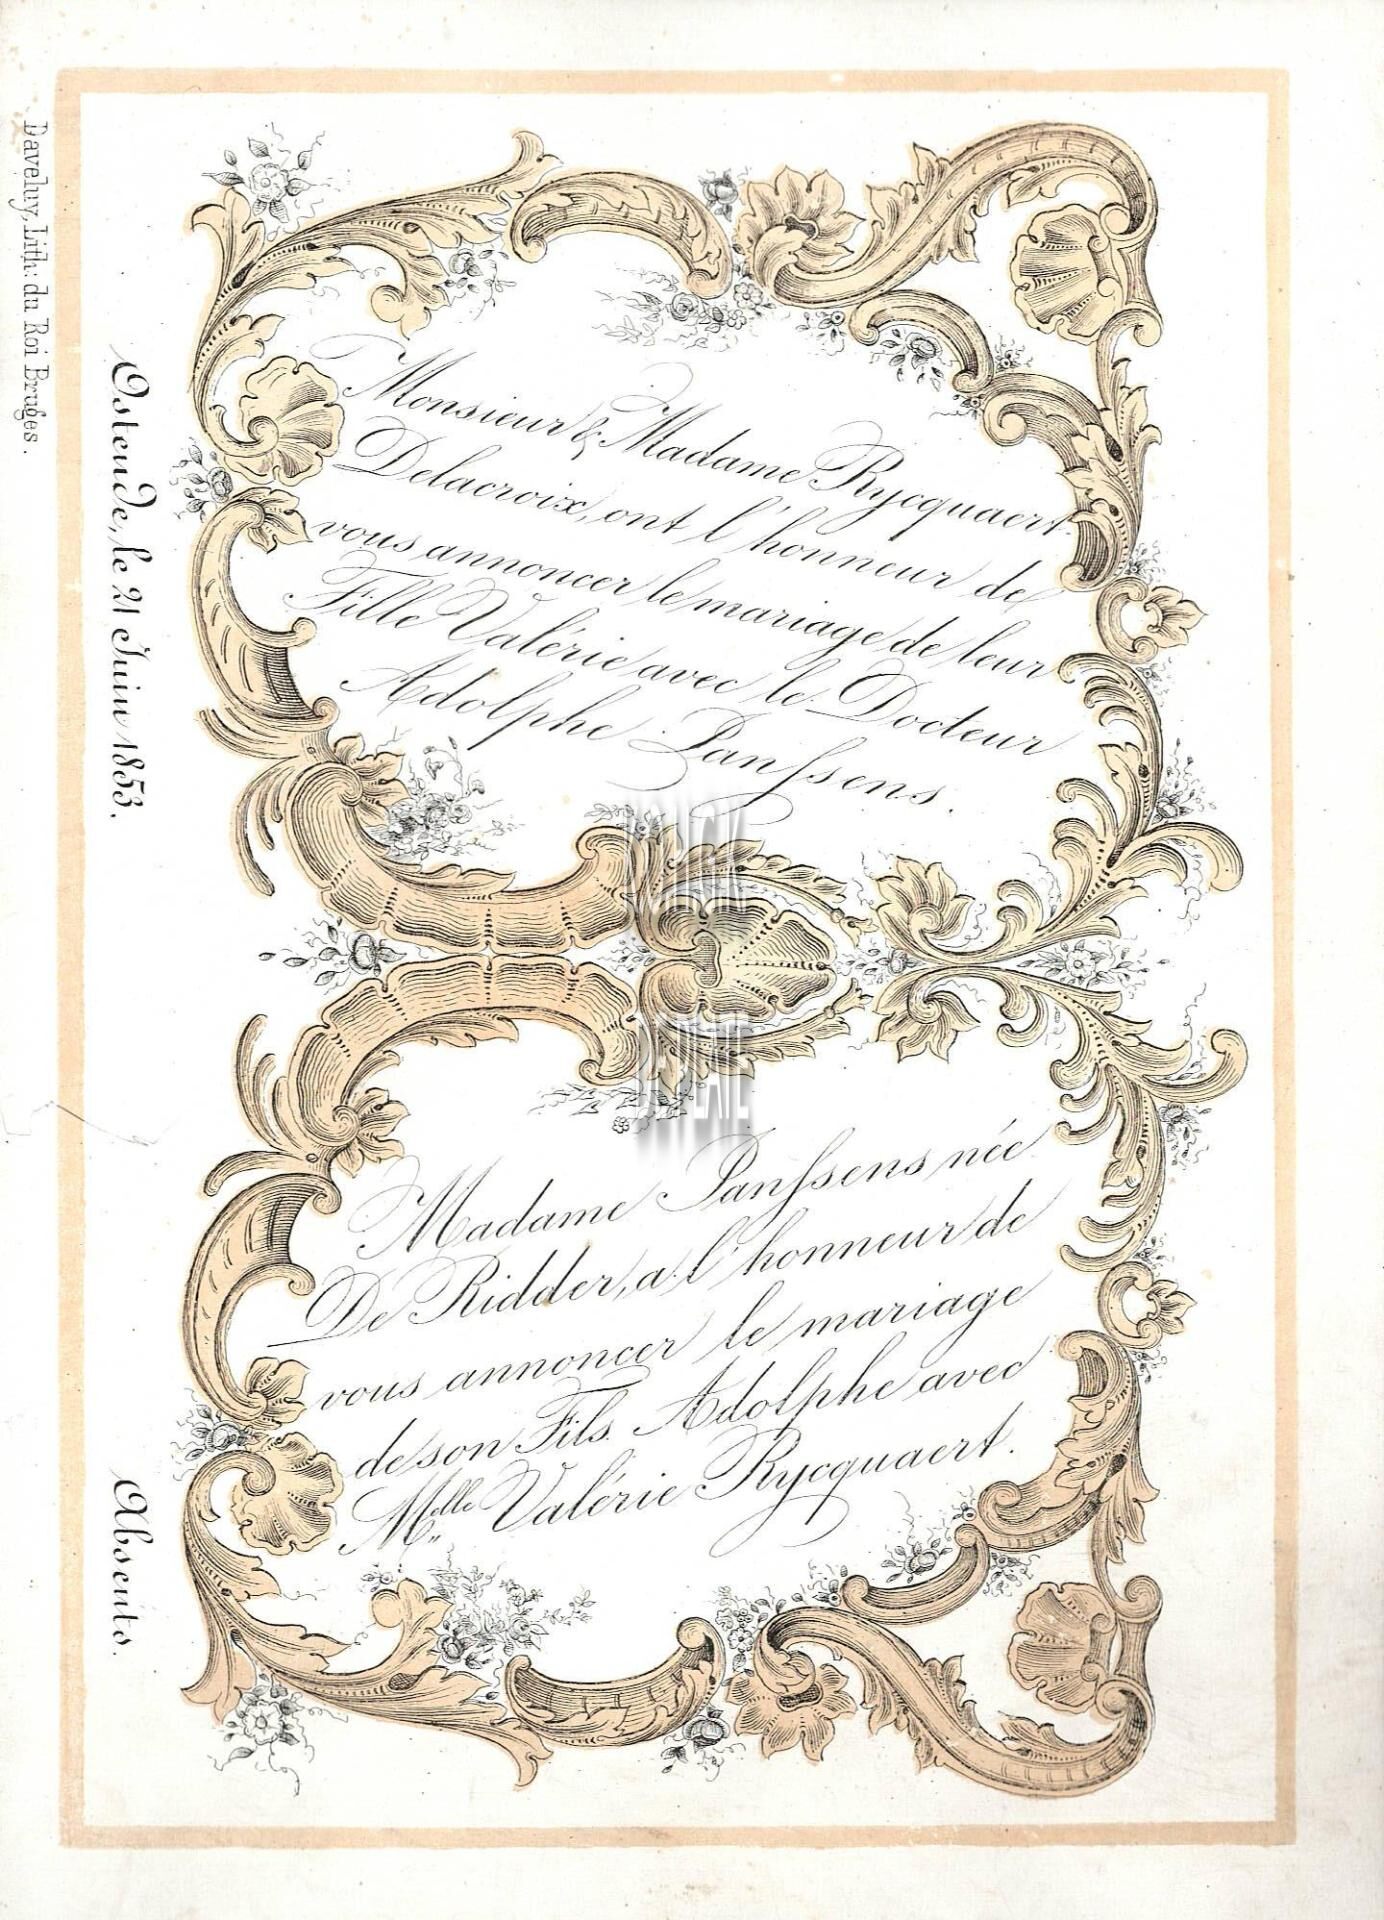 Monsieur & Madame Rycquaert
Delacroix, ont l'honneur de
vous annoncer le mariage de leur
Fille Valérie avec le Docteur
Adolphe Janssens.
Madame Janssens née
De Ridder, a l'honneur de
vous annoncer le mariage
de son Fils Adolphe avec
Mlle Valérie Rycquaert.
Ostende, le 21 Juin 1853.
Absents.
Daveluy, Lith: du Roi Bruges.